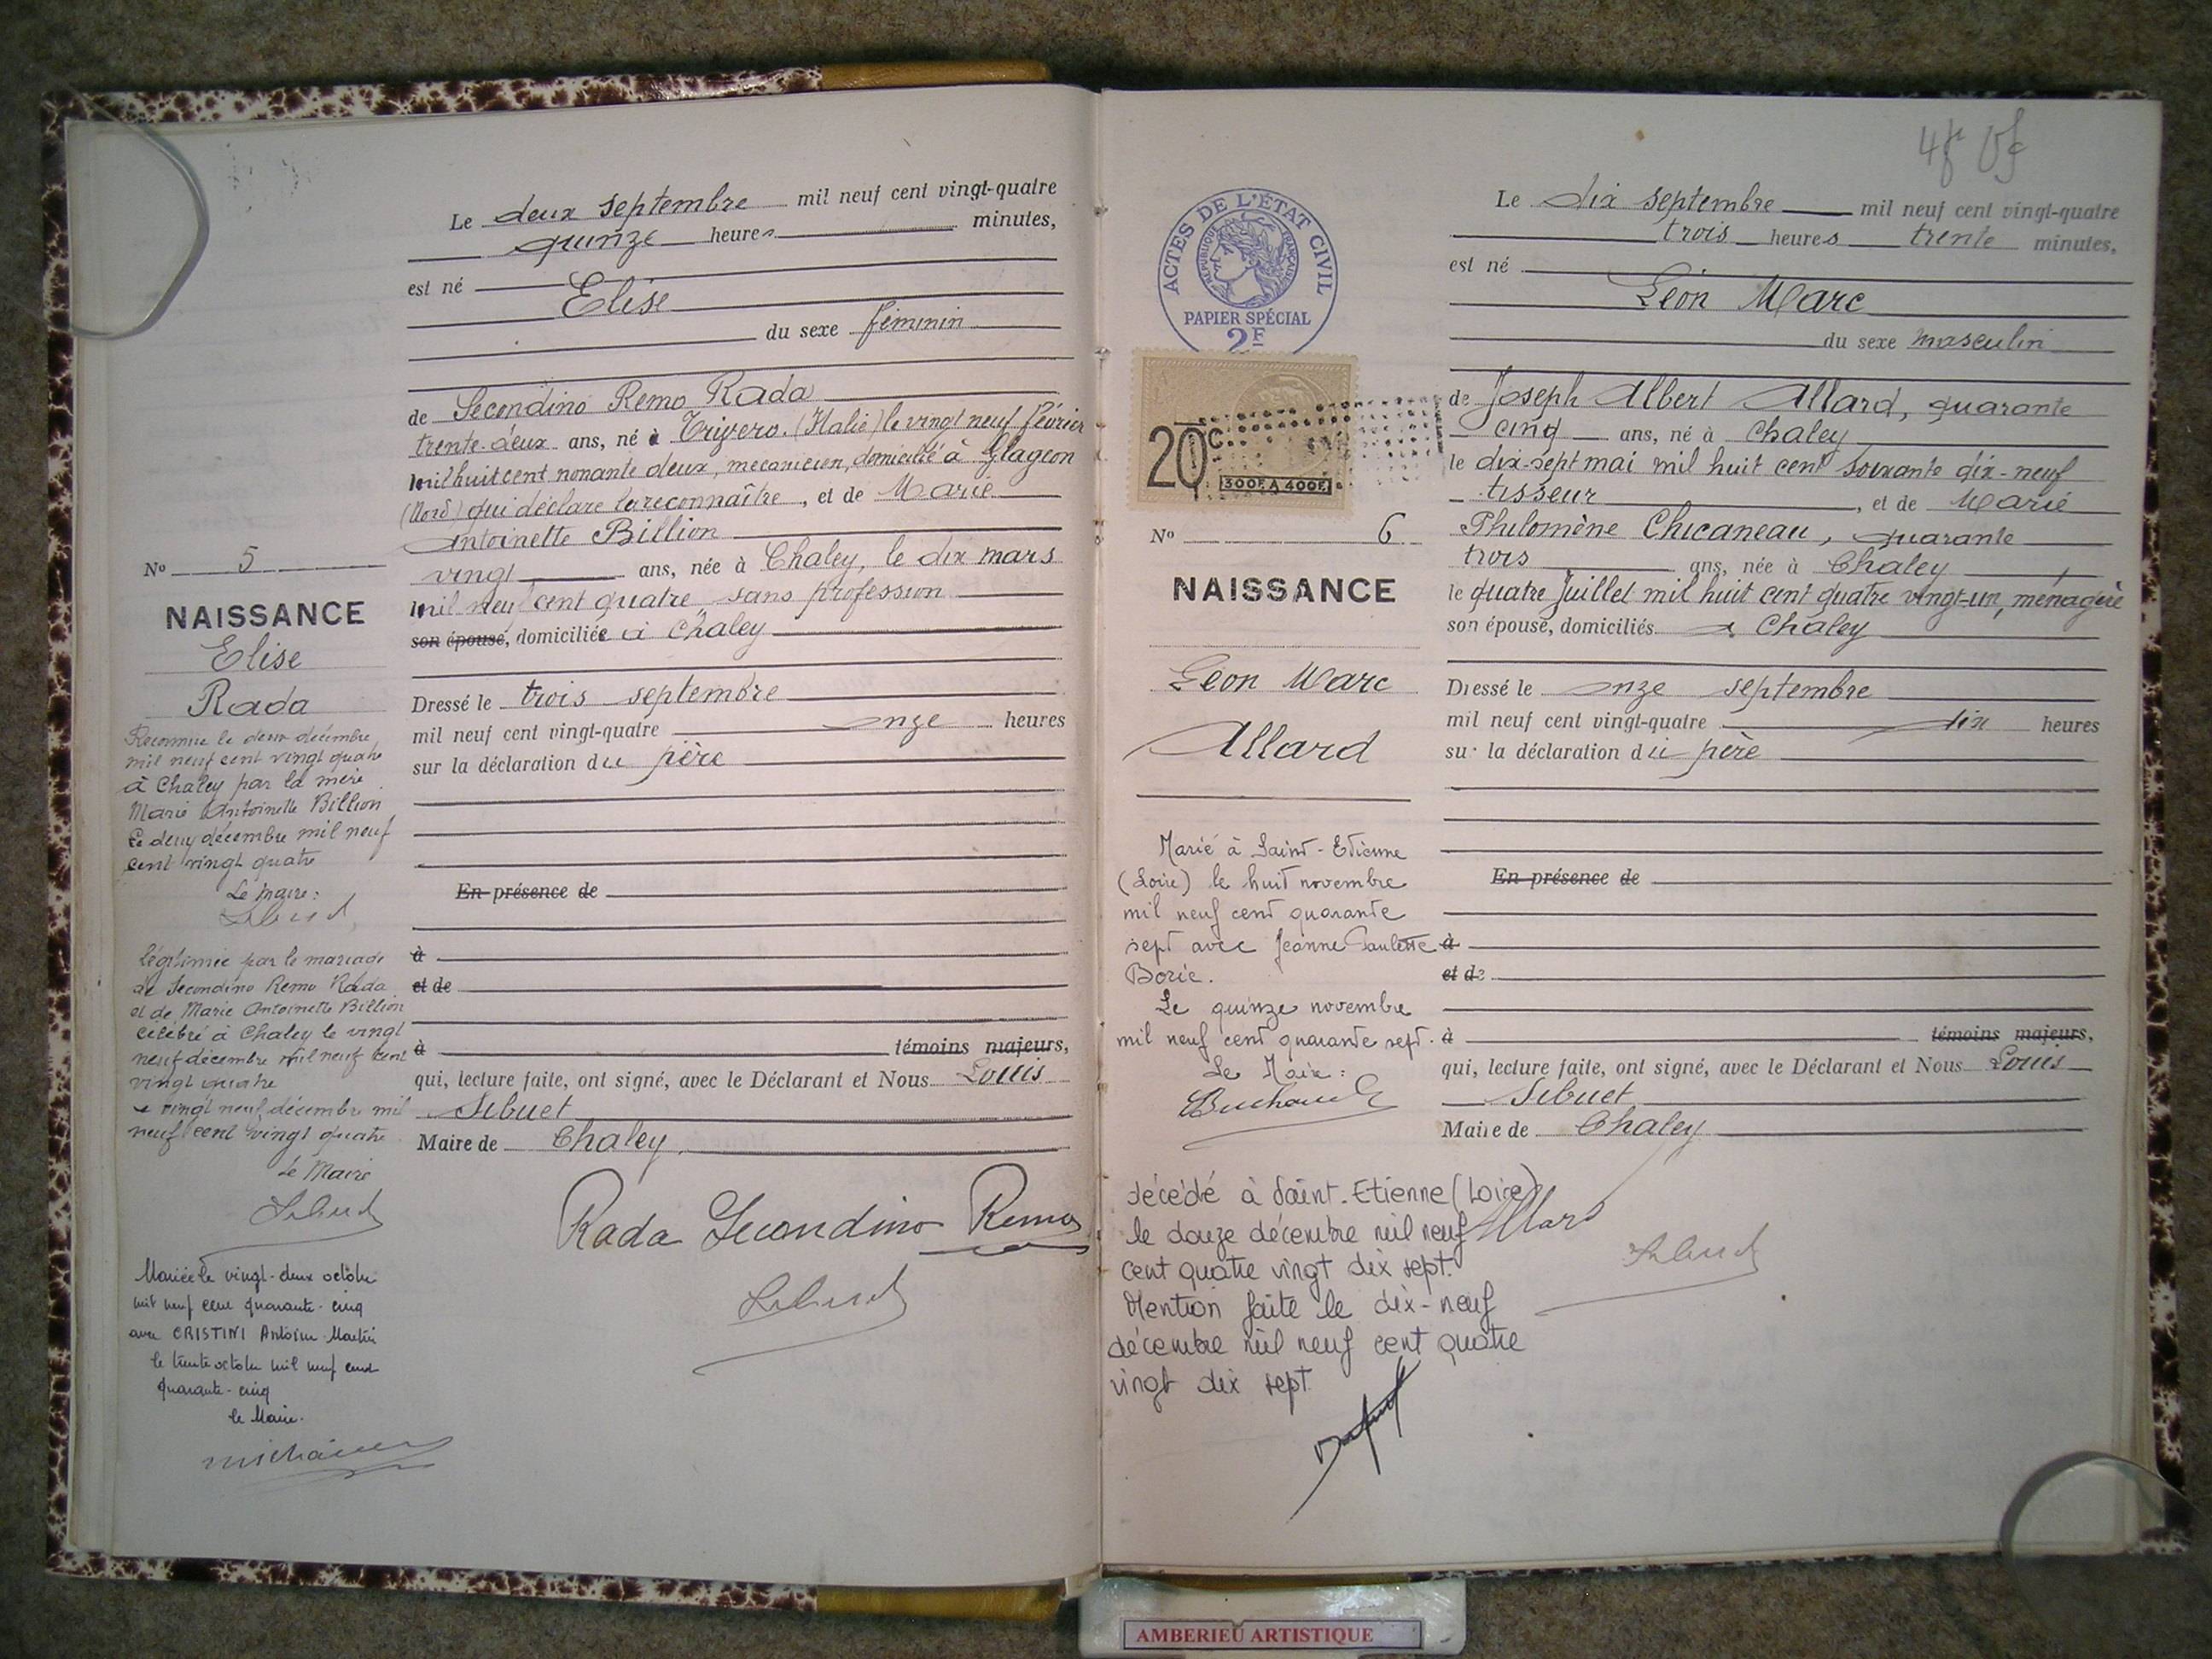 Le deux septembre mil neuf cent vingt-quatre
quinze heures minutes,
est né
Elise
du sexe féminin
de Secondino Remo Rada
trente-deux ans, né à Trivero. (Italie) le vingt neuf février
mil huit cent nonante deux, mécanicien, domicilié à Glageon
(Nord) qui déclare la reconnaître, et de Marie
Antoinette Billion
vingt ans, née à Chaley, le dix mars
mil neuf cent quatre sans profession
son épouse, domiciliée à Chaley
Dressé le trois septembre
mil neuf cent vingt-quatre onze heures
sur la déclaration du père
En présence de
à
et de
à témoins majeurs,
qui, lecture faite, ont signé, avec le Déclarant et Nous Louis
Sibuet
Maire de Chaley
Rada Secondino Remo
Sibuet
No 5
NAISSANCE
Elise
Rada
Reconnue le deux décembre
mil neuf cent vingt quatre
à Chaley par la mère
Marie Antoinette Billion
Le deux décembre mil neuf
cent vingt quatre
Le maire:
Sibuet
légitimée par le mariage
de Secondino Remo Rada
et de Marie Antoinette Billion
célébré à Chaley le vingt
neuf décembre mil neuf cent
vingt quatre
Le vingt neuf décembre mil
neuf cent vingt quatre
Le Maire
Sibuet
Mariée le vingt-deux octobre
mil neuf cent quarante-cinq
avec CRISTINI Antoine Martin
le trente octobre mil neuf cent
quarante-cinq
le Maire.
ACTES DE L'ÉTAT CIVIL
RÉPUBLIQUE FRANÇAISE
PAPIER SPÉCIAL
2F
20c
300F A 400F
No 6
NAISSANCE
Léon Marc
Allard
Marié à Saint-Etienne
(Loire) le huit novembre
mil neuf cent quarante
sept avec Jeanne Paulette
Borie.
Le quinze novembre
mil neuf cent quarante sept.
Le Maire:
décédé à Saint-Etienne (Loire)
le douze décembre mil neuf
cent quatre vingt dix sept.
Mention faite le dix-neuf
décembre mil neuf cent quatre
vingt dix sept
Le dix septembre mil neuf cent vingt-quatre
trois heures trente minutes,
est né
Léon Marc
du sexe masculin
de Joseph Albert Allard, quarante
cinq ans, né à Chaley
le dix-sept mai mil huit cent soixante dix-neuf
tisseur, et de Marie
Philomène Chicaneau, quarante
trois ans, née à Chaley,
le quatre Juillet mil huit cent quatre vingt-un, ménagère
son épouse, domiciliés à Chaley
Dressé le onze septembre
mil neuf cent vingt-quatre dix heures
sur la déclaration du père
En présence de
à
et de
à témoins majeurs,
qui, lecture faite, ont signé, avec le Déclarant et Nous Louis
Sibuet
Maire de Chaley
Allard
Sibuet
AMBERIEU ARTISTIQUE